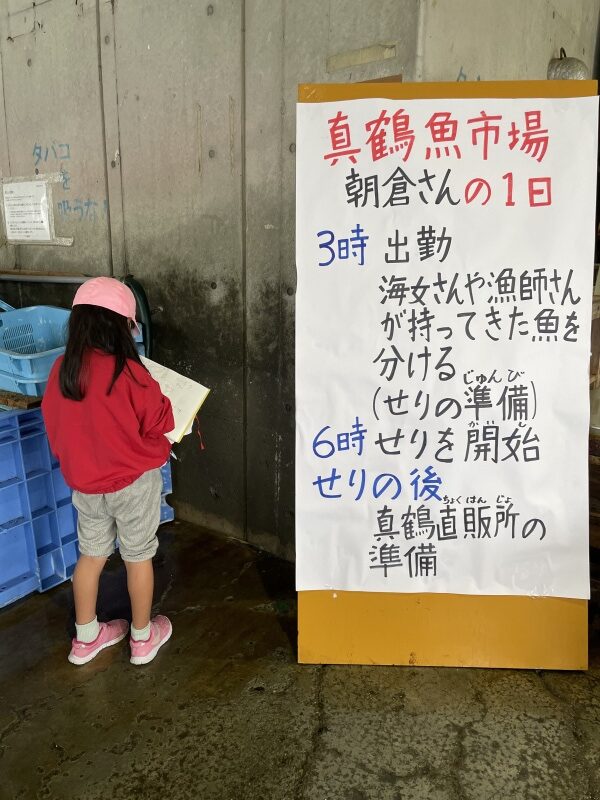 タバコ
を
吸うな
真鶴魚市場
朝倉さんの1日
3時 出勤
海女さんや漁師さん
が持ってきた魚を
分ける
じゅんび
(せりの準備)
かいし
6時 せりを開始
せりの後
ちょくはんじょ
真鶴直販所の
準備